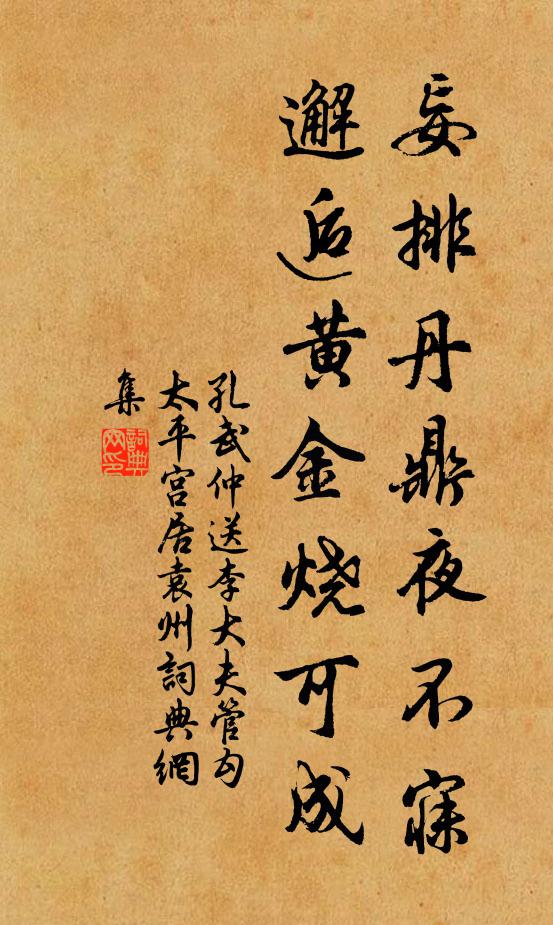 妄排丹鼎夜不寐
邂逅黄金烧可成
孔武仲送李大夫管勾
太平宫居袁州詞典網
集
詞典
网印